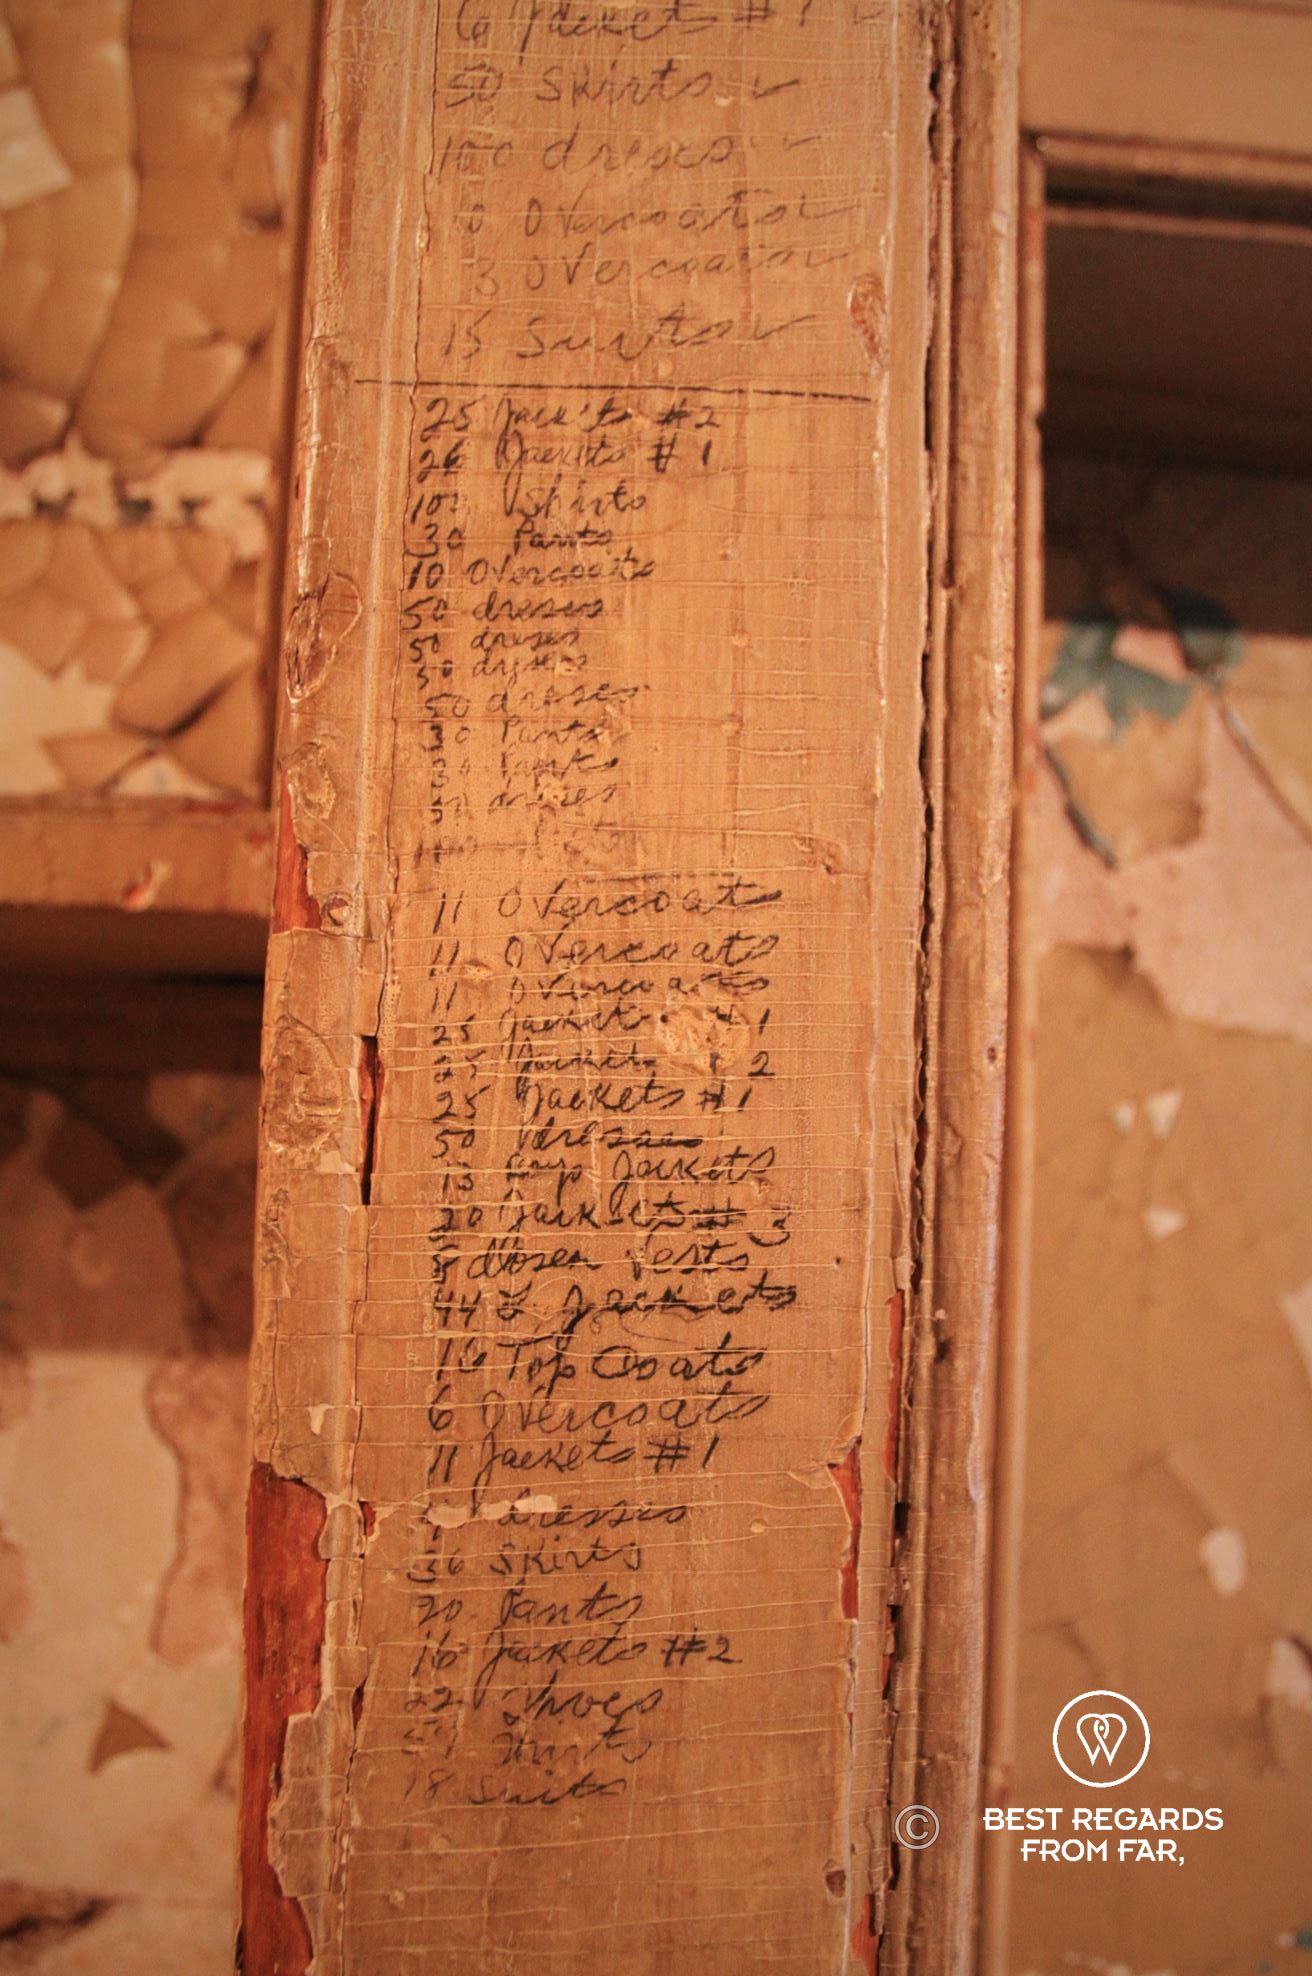 6 Jackets # 1 ✓
50 Skirts ✓
100 dreses ✓
Overcoats ✓
3 Overcoats ✓
15 Suits ✓
25 Jackets #2
26 Jackets # 1
Shirts
30 Pants
10 Overcoats
50 dreses
50 dreses
50 dreses
50 dreses
30 Pants
30 Pants
50 dresses
100
11 Overcoats
11 Overcoats
11 Overcoats
25 Jackets # 1
25 Jackets # 2
25 Jackets # 1
50 dresses
13 Jackets
20 Jackets # 3
Vests
44 Jackets
16 Top Coats
6 Overcoats
11 Jackets # 1
dresses
36 Skirts
20 Pants
16 Jackets #2
22 Shoes
Shirts
18 Suits
© BEST REGARDS
FROM FAR,